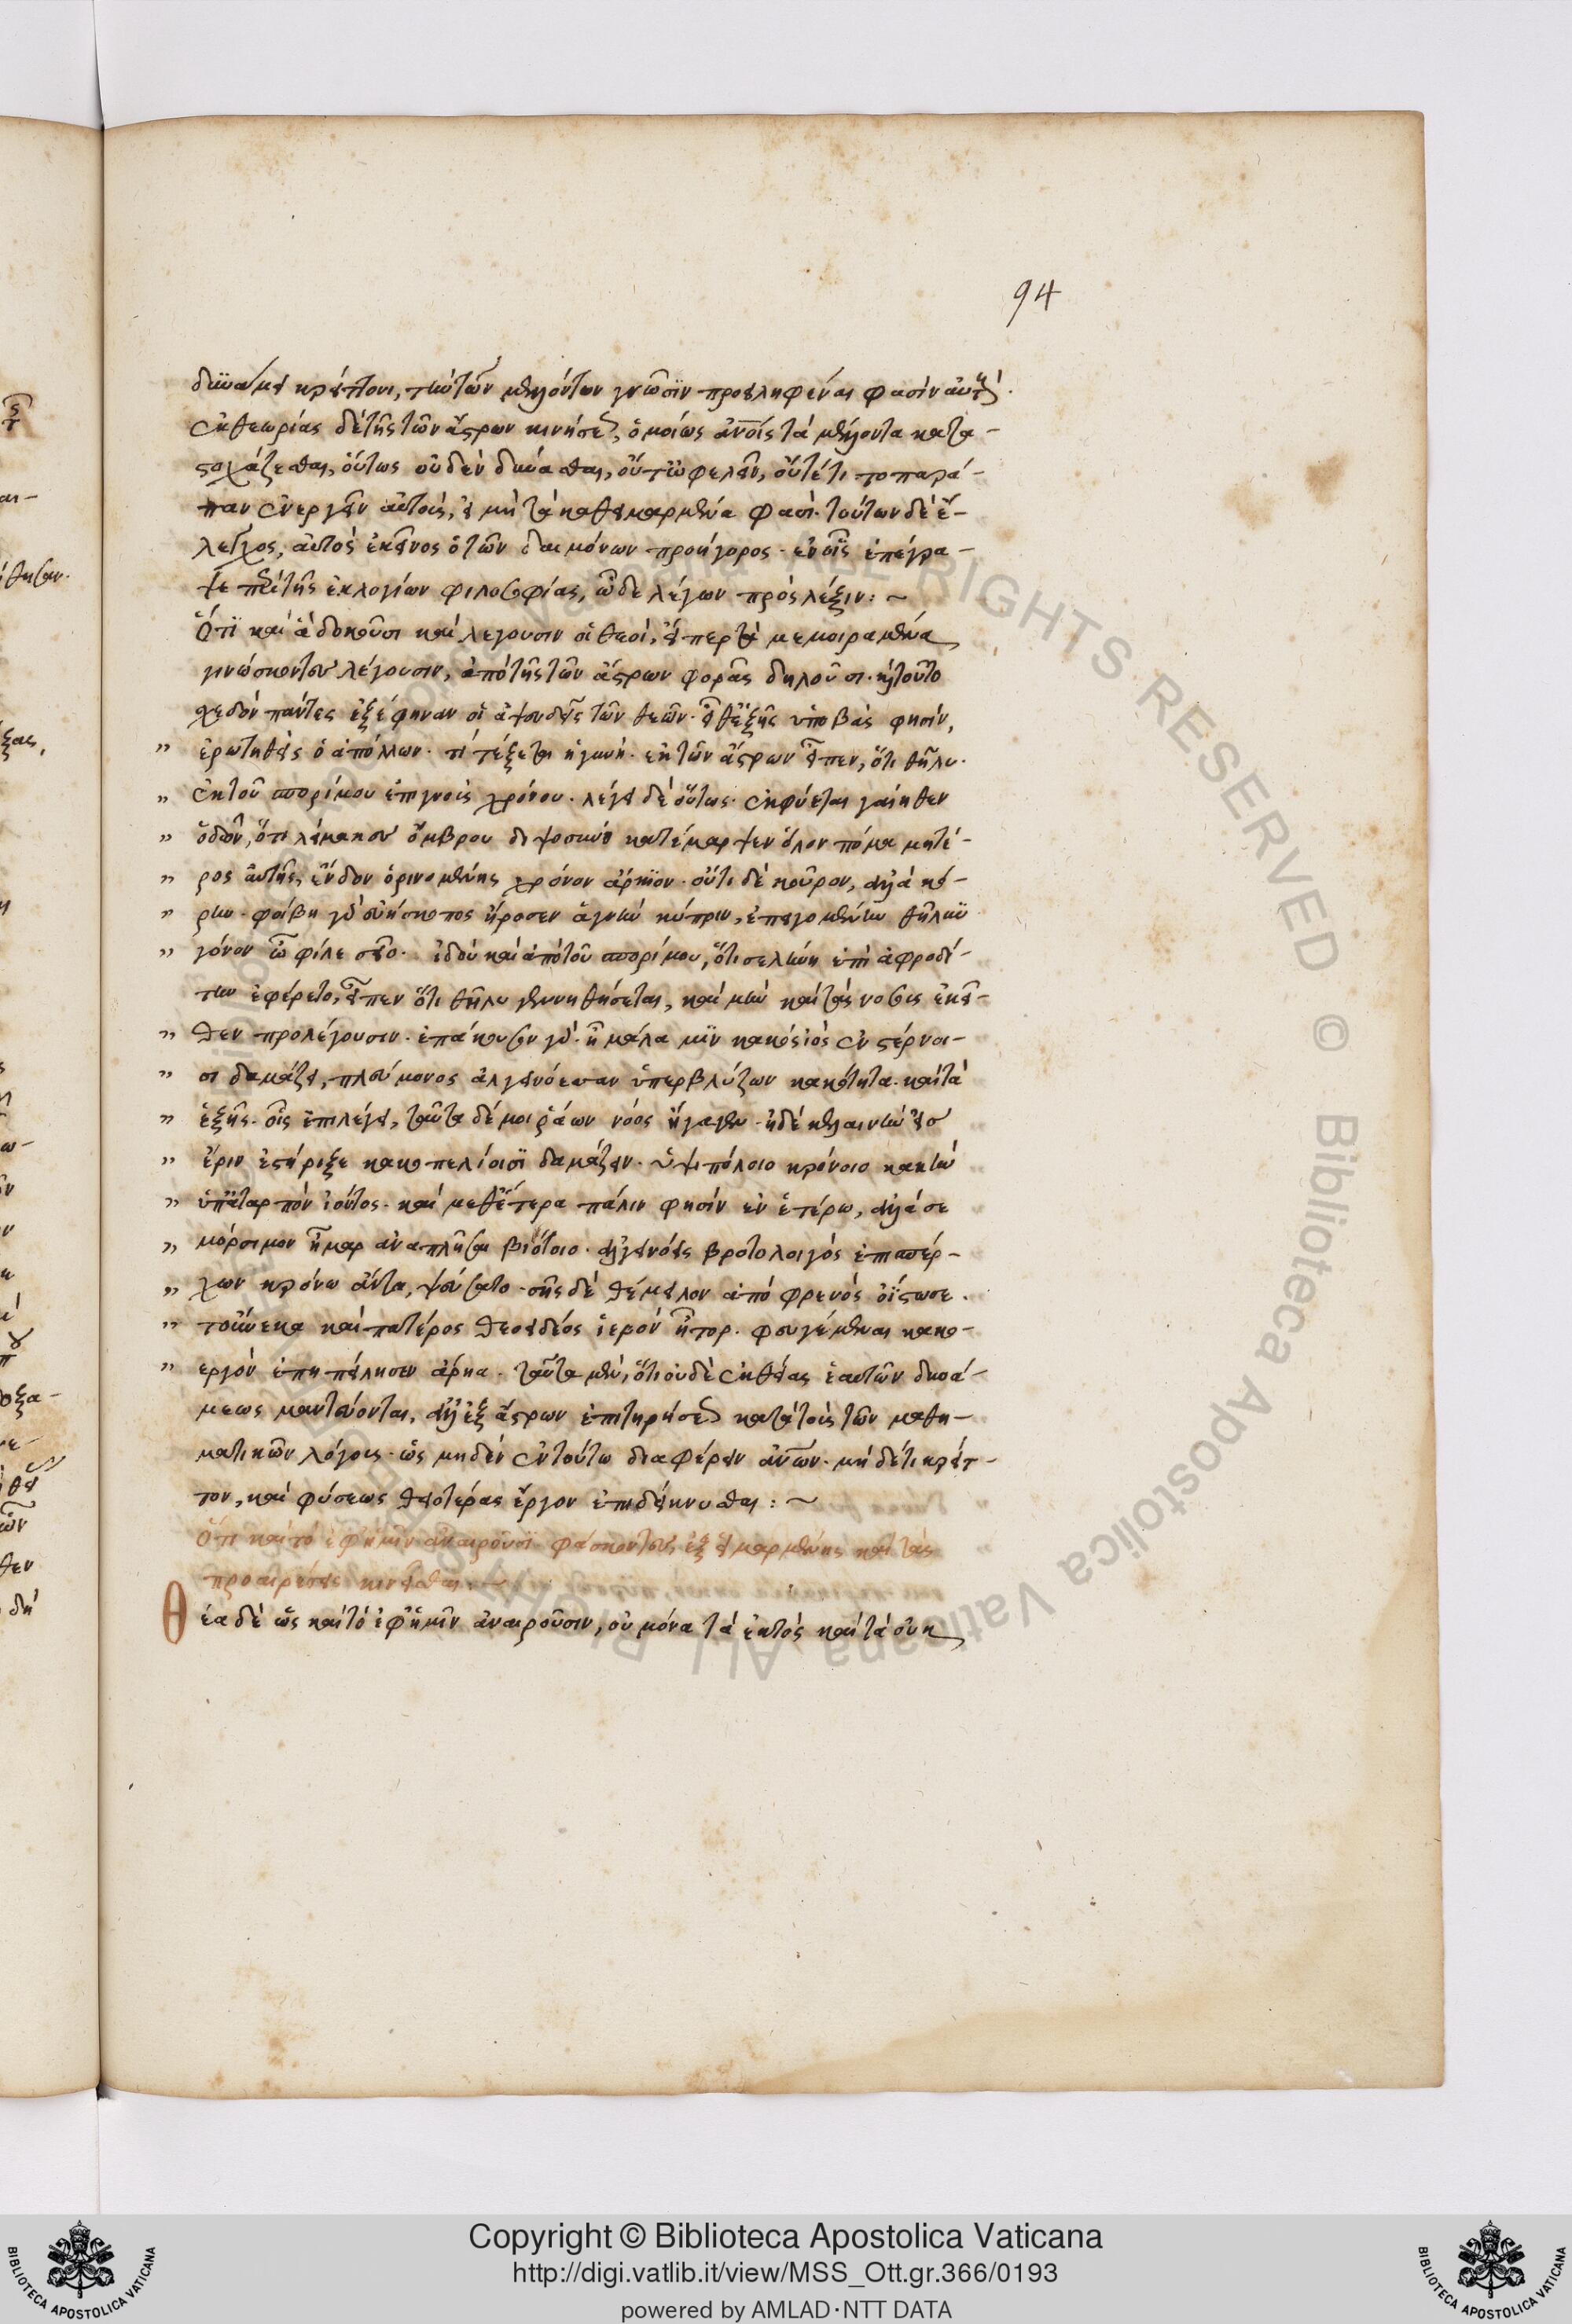 94
δυνάμει κρείττονι, τὴν τῶν μελλόντων γνῶσιν προειληφέναι φασὶν αὐτούς.
ἐκ θεωρίας δὲ τῆς τῶν ἄστρων κινήσεως, ὁμοίως ἀνοις τὰ μέλλοντα κατα-
στοχάζεσθαι, οὕτως οὐδὲν δύνασθαι, οὔτ' ὠφελεῖν, οὔτέ τι τοπαρά-
παν ἐνεργεῖν αὐτοὺς, εἰ μὴ τὰ καθειμαρμένα φασί. τούτων δὲ ἔ-
λεγχος, αὐτὸς ἐκεῖνος ὁ τῶν δαιμόνων προήγορος. ἐν οἷς ἐπέγρα-
ψε περὶ τῆς ἐκ λογίων φιλοσοφίας, ὧδε λέγων πρὸς λέξιν: ~
Ὅτι καὶ ἃ δοκοῦσι καὶ λέγουσιν οἱ θεοί, εἴπερ τὰ μεμοιραμένα
γινώσκοντες λέγουσιν, ἀπὸ τῆς τῶν ἄστρων φορᾶς δηλοῦσι. καὶ τοῦτο
σχεδὸν πάντες ἐξέφηναν οἱ ἀψευδεῖς τῶν θεῶν. εἶθ' ἑξῆς ὑποβὰς φησὶν,
" ἐρωτηθεὶς ὁ ἀπόλλων. τί τέξεται ἡ γυνή. ἐκ τῶν ἄστρων εἶπεν, ὅτι θῆλυ.
" ἐκ τοῦ σπορίμου ἐπιγνοὺς χρόνου. λέγει δὲ οὕτως. ἐκφύεται γαίηθεν
" ὁδῶν, ὅτι λείμακες ὄμβρου διψοσύνη κατέμαρψεν ὅλον πόμα μητέ-
" ρος αὐτῆς, ἔνδον ὀρινομένης χρόνον ἄρκιον. οὔτι δὲ κοῦρον, ἀλλὰ κό-
" ρην. φοίβη γὰρ εὐήσκοπος ἤροσεν ἁγνὴν κύπριν, ἐπειγομένην θῆλυν
" γόνον ὦ φίλε σεῖο. ἰδοὺ καὶ ἀπὸ τοῦ σπορίμου, ὅτι σελήνη ἐπὶ ἀφροδί-
την ἐφέρετο, εἶπεν ὅτι θῆλυ γεννηθήσεται, καὶ μὴν καὶ τὰς νόσους ἐκεῖ-
" θεν προλέγουσιν. ἐπάκουσον γάρ. ἦ μάλα μιν κακὸς ἰὸς ἐν στέρνοι-
" σι δαμάζει, πλεύμονος ἀλγεινόεσσαν ὑπερβλύζων κακότητα. καὶ τὰ
" ἑξῆς. οἷς ἐπιλέγει, ταῦτα δὲ μοιράων νόος ἤγαγεν. ἠδὲ κελαινὴν εἰς
" ἔριν ἐστήριξε κακοπελίοισι δαμάζειν. ὑψιπόλοιο κρόνοιο κακὴν
" ὑπ' ἀταρπὸν ἰόντος. καὶ μεθ' ἕτερα πάλιν φησὶν ἐν ἑτέρῳ, ἀλλά σε
" μόρσιμον ἦμαρ ἀναπλῆσαι βιότοιο. ἀλγεινόεις βροτολοιγὸς ἐπισπέρ-
" χων κρόνῳ ἄντα, ψεύσατο. σῆς δὲ θέμειλον ἀπὸ φρενὸς οἴστωσε.
" τοὔνεκα καὶ πατέρος θεοειδέος ἱερὸν ἦτορ. φευγέμεναι κακο-
" εργὸν ἐπηπείλησεν ἄρηα. ταῦτα μὲν, ὅτι οὐδὲ ἐκ θείας ἑαυτῶν δυνά-
μεως μαντεύονται, ἀλλ' ἐξ ἄστρων ἐπιτηρήσεως κατὰ τοὺς τῶν μαθη-
ματικῶν λόγους. ὡς μηδὲν ἐν τούτῳ διαφέρειν ἀνων. μὴ δέ τι κρεῖτ-
τον, καὶ φύσεως θειοτέρας ἔργον ἐπιδείκνυσθαι: ~
Ὅτι καὶ τὸ ἐφ' ἡμῖν ἀναιροῦσι φάσκοντες ἐξ εἱμαρμένης καὶ τὰς
προαιρέσεις κινεῖσθαι: ~
Θέα δὲ ὡς καὶ τὸ ἐφ' ἡμῖν ἀναιροῦσιν, οὐ μόνα τὰ ἐκτὸς καὶ τὰ οὐκ
Copyright © Biblioteca Apostolica Vaticana
http://digi.vatlib.it/view/MSS_Ott.gr.366/0193
powered by AMLAD·NTT DATA